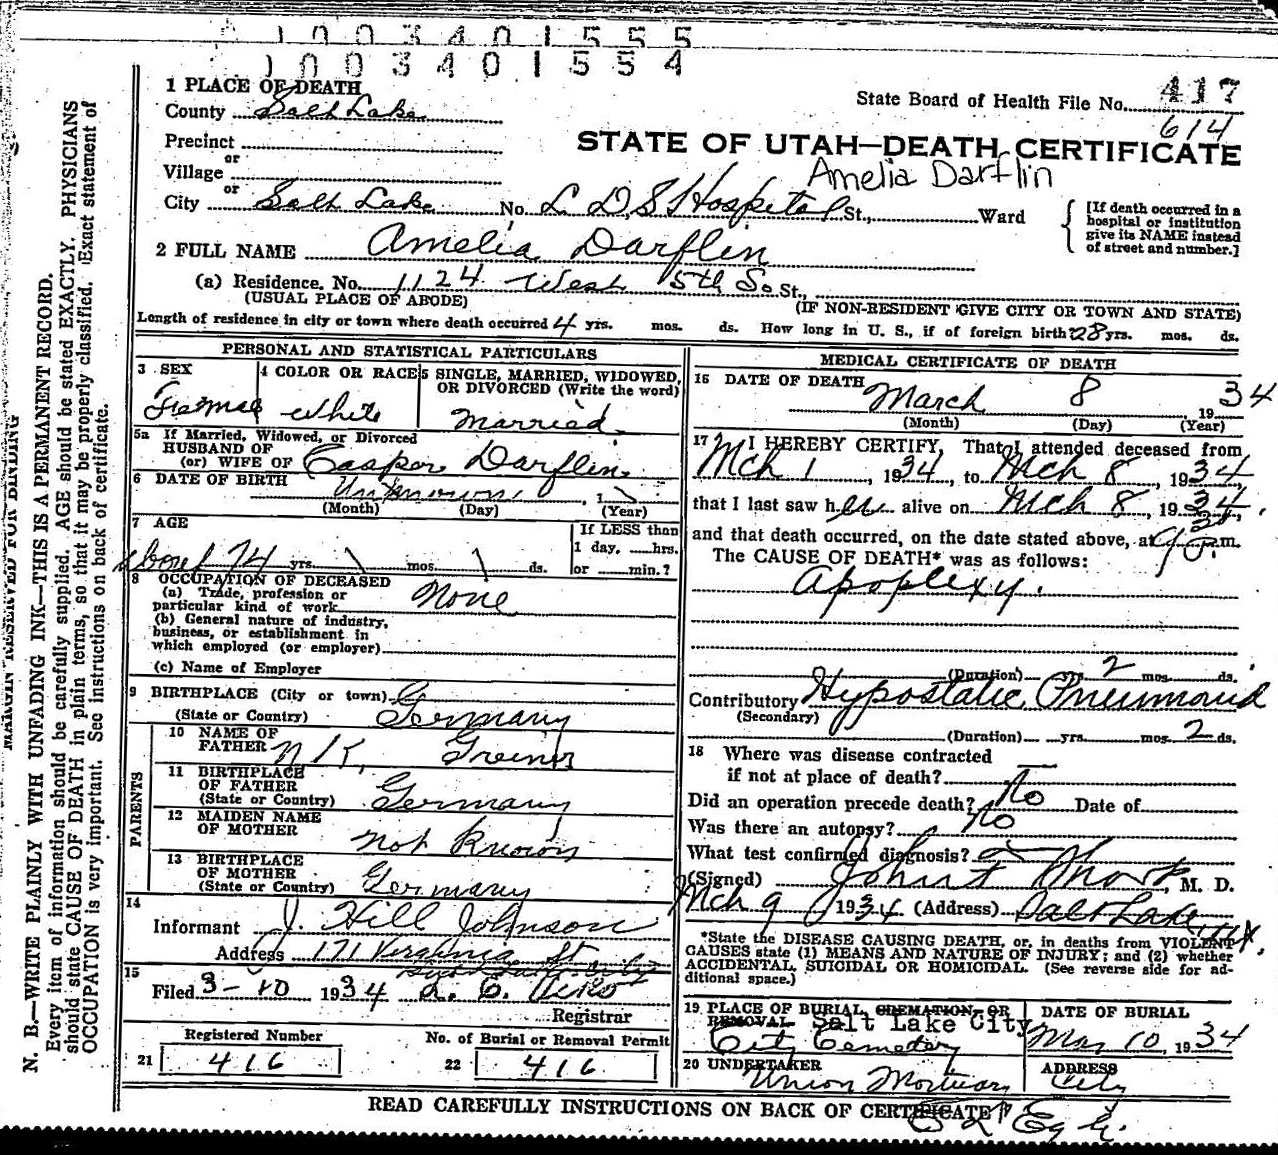 1003401555
1003401554
1 PLACE OF DEATH
County Salt Lake
State Board of Health File No. 417
614
Precinct
or
Village
or
STATE OF UTAH—DEATH CERTIFICATE
Amelia Darflin
City Salt Lake No. L D S Hospital St., Ward
[If death occurred in a hospital or institution give its NAME instead of street and number.]
2 FULL NAME Amelia Darflin
(a) Residence. No. 1124 West 5th So. St.,
(USUAL PLACE OF ABODE) (IF NON-RESIDENT GIVE CITY OR TOWN AND STATE)
Length of residence in city or town where death occurred 4 yrs. mos. ds. How long in U. S., if of foreign birth 28 yrs. mos. ds.
PERSONAL AND STATISTICAL PARTICULARS
3 SEX 4 COLOR OR RACE 5 SINGLE, MARRIED, WIDOWED, OR DIVORCED (Write the word)
Female White Married
5a If Married, Widowed, or Divorced
HUSBAND OF
(or) WIFE OF Casper Darflin
6 DATE OF BIRTH Unknown, 1
(Month) (Day) (Year)
7 AGE
If LESS than
1 day, hrs.
or min.?
about 74 yrs. mos. ds.
8 OCCUPATION OF DECEASED
(a) Trade, profession or
particular kind of work None
(b) General nature of industry,
business, or establishment in
which employed (or employer)
(c) Name of Employer
9 BIRTHPLACE (City or town)
(State or Country) Germany
PARENTS
10 NAME OF
FATHER N. K. Greiner
11 BIRTHPLACE
OF FATHER
(State or Country) Germany
12 MAIDEN NAME
OF MOTHER not known
13 BIRTHPLACE
OF MOTHER
(State or Country) Germany
14
Informant J. Hill Johnson
Address 171 Virginia St
Salt Lake City
15
Filed 3-10 1934
Registrar
Registered Number No. of Burial or Removal Permit
21 416 22 416
MEDICAL CERTIFICATE OF DEATH
16 DATE OF DEATH
March 8, 1934
(Month) (Day) (Year)
17 I HEREBY CERTIFY, That I attended deceased from
Mch 1, 1934, to Mch 8, 1934,
that I last saw her alive on Mch 8, 1934,
and that death occurred, on the date stated above, at 9 30 P.m.
The CAUSE OF DEATH* was as follows:
Apoplexy.
(Duration) yrs. 2 mos. ds.
Contributory Hypostatic Pneumonia
(Secondary)
(Duration) yrs. mos. 2 ds.
18 Where was disease contracted
if not at place of death?
Did an operation precede death? No Date of
Was there an autopsy? No
What test confirmed diagnosis?
(Signed) M. D.
Mch 9 1934 (Address) Salt Lake
*State the DISEASE CAUSING DEATH, or, in deaths from VIOLENT
CAUSES state (1) MEANS AND NATURE OF INJURY; and (2) whether
ACCIDENTAL, SUICIDAL OR HOMICIDAL. (See reverse side for ad-
ditional space.)
19 PLACE OF BURIAL, CREMATION, OR DATE OF BURIAL
REMOVAL Salt Lake City
City Cemetery Mar 10, 1934
20 UNDERTAKER ADDRESS
Union Mortuary City
READ CAREFULLY INSTRUCTIONS ON BACK OF CERTIFICATE
MARGIN RESERVED FOR BINDING
N. B.—WRITE PLAINLY WITH UNFADING INK—THIS IS A PERMANENT RECORD.
Every item of information should be carefully supplied. AGE should be stated EXACTLY. PHYSICIANS
should state CAUSE OF DEATH in plain terms, so that it may be properly classified. Exact statement of
OCCUPATION is very important. See instructions on back of certificate.